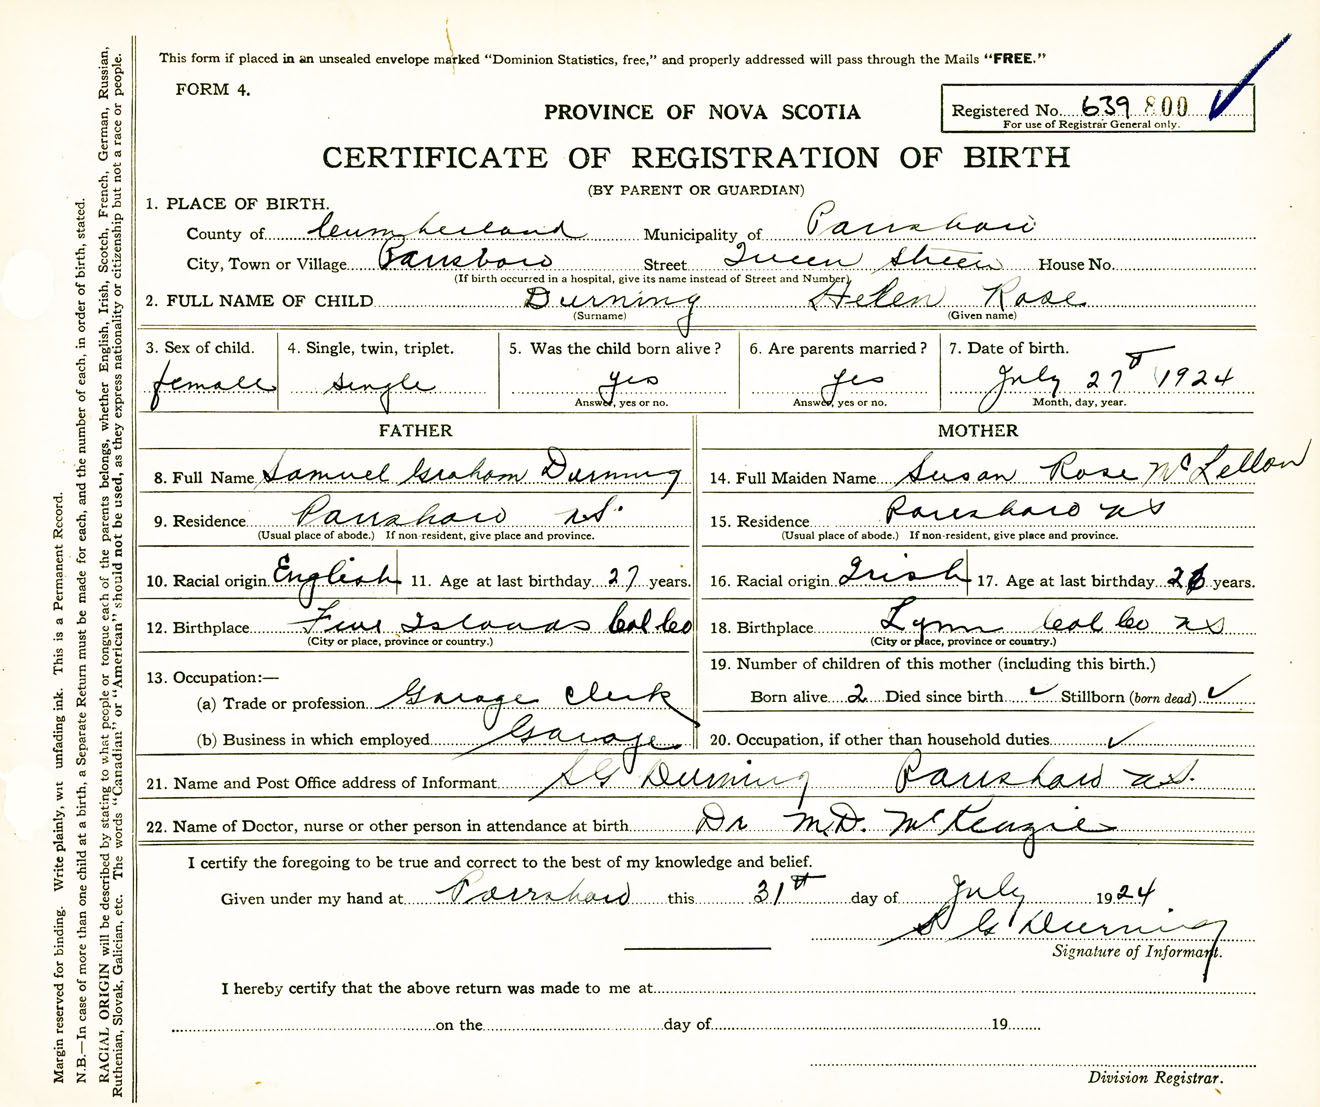 This form if placed in an unsealed envelope marked "Dominion Statistics, free," and properly addressed will pass through the Mails "FREE."
FORM 4.
PROVINCE OF NOVA SCOTIA
Registered No. 639 800
For use of Registrar General only.
CERTIFICATE OF REGISTRATION OF BIRTH
(BY PARENT OR GUARDIAN)
1. PLACE OF BIRTH.
County of Cumberland Municipality of Parrsboro
City, Town or Village Parrsboro Street Queen Street House No.
(If birth occurred in a hospital, give its name instead of Street and Number)
2. FULL NAME OF CHILD Durning Helen Rose
(Surname) (Given name)
3. Sex of child. 4. Single, twin, triplet. 5. Was the child born alive? 6. Are parents married? 7. Date of birth.
female single yes yes July 27th 1924
Answer, yes or no. Answer, yes or no. Month, day, year.
FATHER MOTHER
8. Full Name Samuel Graham Durning 14. Full Maiden Name Susan Rose McLellan
9. Residence Parrsboro N.S. 15. Residence Parrsboro NS
(Usual place of abode.) If non-resident, give place and province. (Usual place of abode.) If non-resident, give place and province.
10. Racial origin English 11. Age at last birthday 27 years. 16. Racial origin Irish 17. Age at last birthday years.
12. Birthplace Five Islands Col Co 18. Birthplace Lynn Col Co NS
(City or place, province or country.) (City or place, province or country.)
13. Occupation:— 19. Number of children of this mother (including this birth.)
(a) Trade or profession Garage Clerk Born alive 2 Died since birth ✓ Stillborn (born dead) ✓
(b) Business in which employed Garage 20. Occupation, if other than household duties ✓
21. Name and Post Office address of Informant S G Durning Parrsboro N.S.
22. Name of Doctor, nurse or other person in attendance at birth Dr M.D. McKenzie
I certify the foregoing to be true and correct to the best of my knowledge and belief.
Given under my hand at Parrsboro this 31st day of July 1924
S G Durning
Signature of Informant.
I hereby certify that the above return was made to me at
on the day of 19
Division Registrar.
Margin reserved for binding. Write plainly, unfading ink. This is a Permanent Record.
N.B.—In case of more than one child at a birth, a Separate Return must be made for each, and the number of each, in order of birth, stated.
RACIAL ORIGIN will be described by stating to what people or tongue each of the parents belongs, whether English, Irish, Scotch, French, German, Russian,
Ruthenian, Slovak, Galician, etc. The words "Canadian" or "American" should not be used, as they express nationality or citizenship but not a race or people.